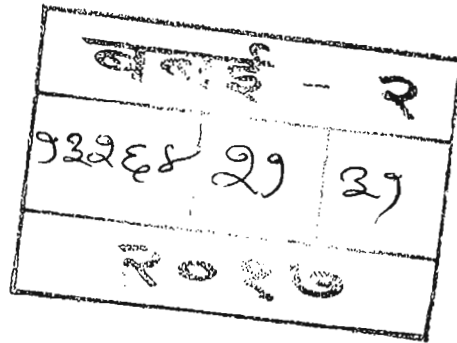 बबई - २
१३२६४ २१ ३१
२०१७